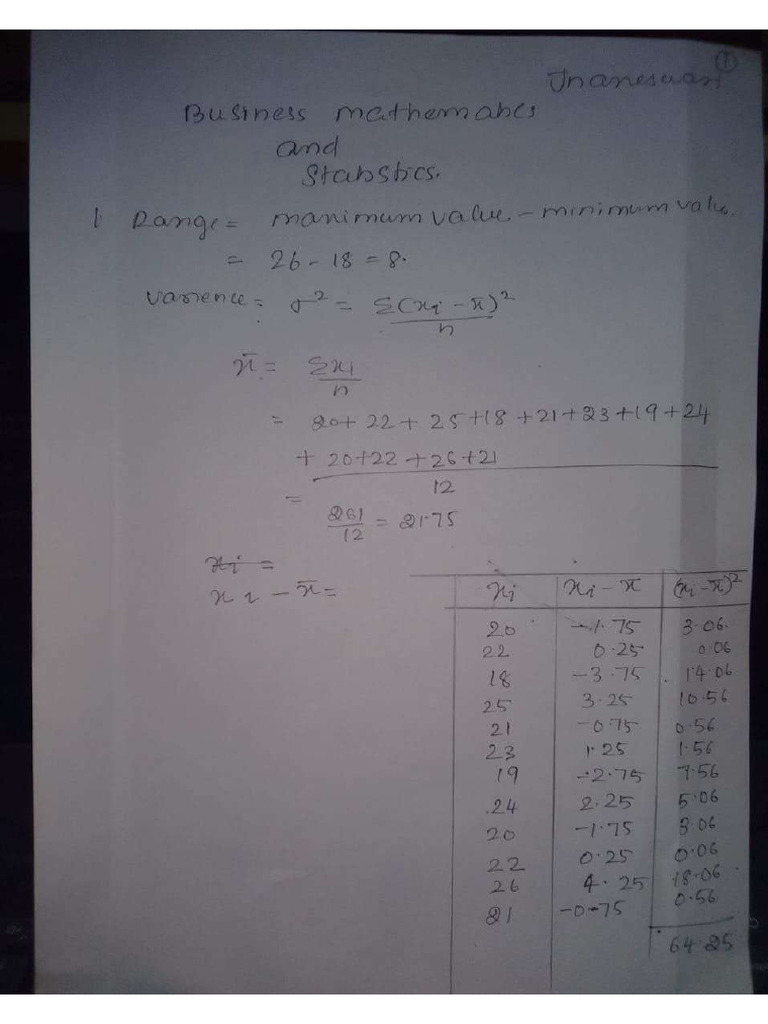 ①
Jnaneswari
Business mathematics
and
Statistics.
1 Range = maximum value - minimum value.
= 26 - 18 = 8.
varience = σ² = Σ(xi - x̄)²
n
x̄ = Σxi
n
= 20+ 22 + 25 +18 +21+23+19+24
+ 20+22 +26+21
12
= 261
12 = 21.75
xi =
xi - x̄ =
xi xi - x̄ (xi - x̄)²
20 -1.75 3.06
22 0.25 0.06
18 -3.75 14.06
25 3.25 10.56
21 -0.75 0.56
23 1.25 1.56
19 -2.75 7.56
24 2.25 5.06
20 -1.75 3.06
22 0.25 0.06
26 4.25 18.06
21 -0.75 0.56
64.25